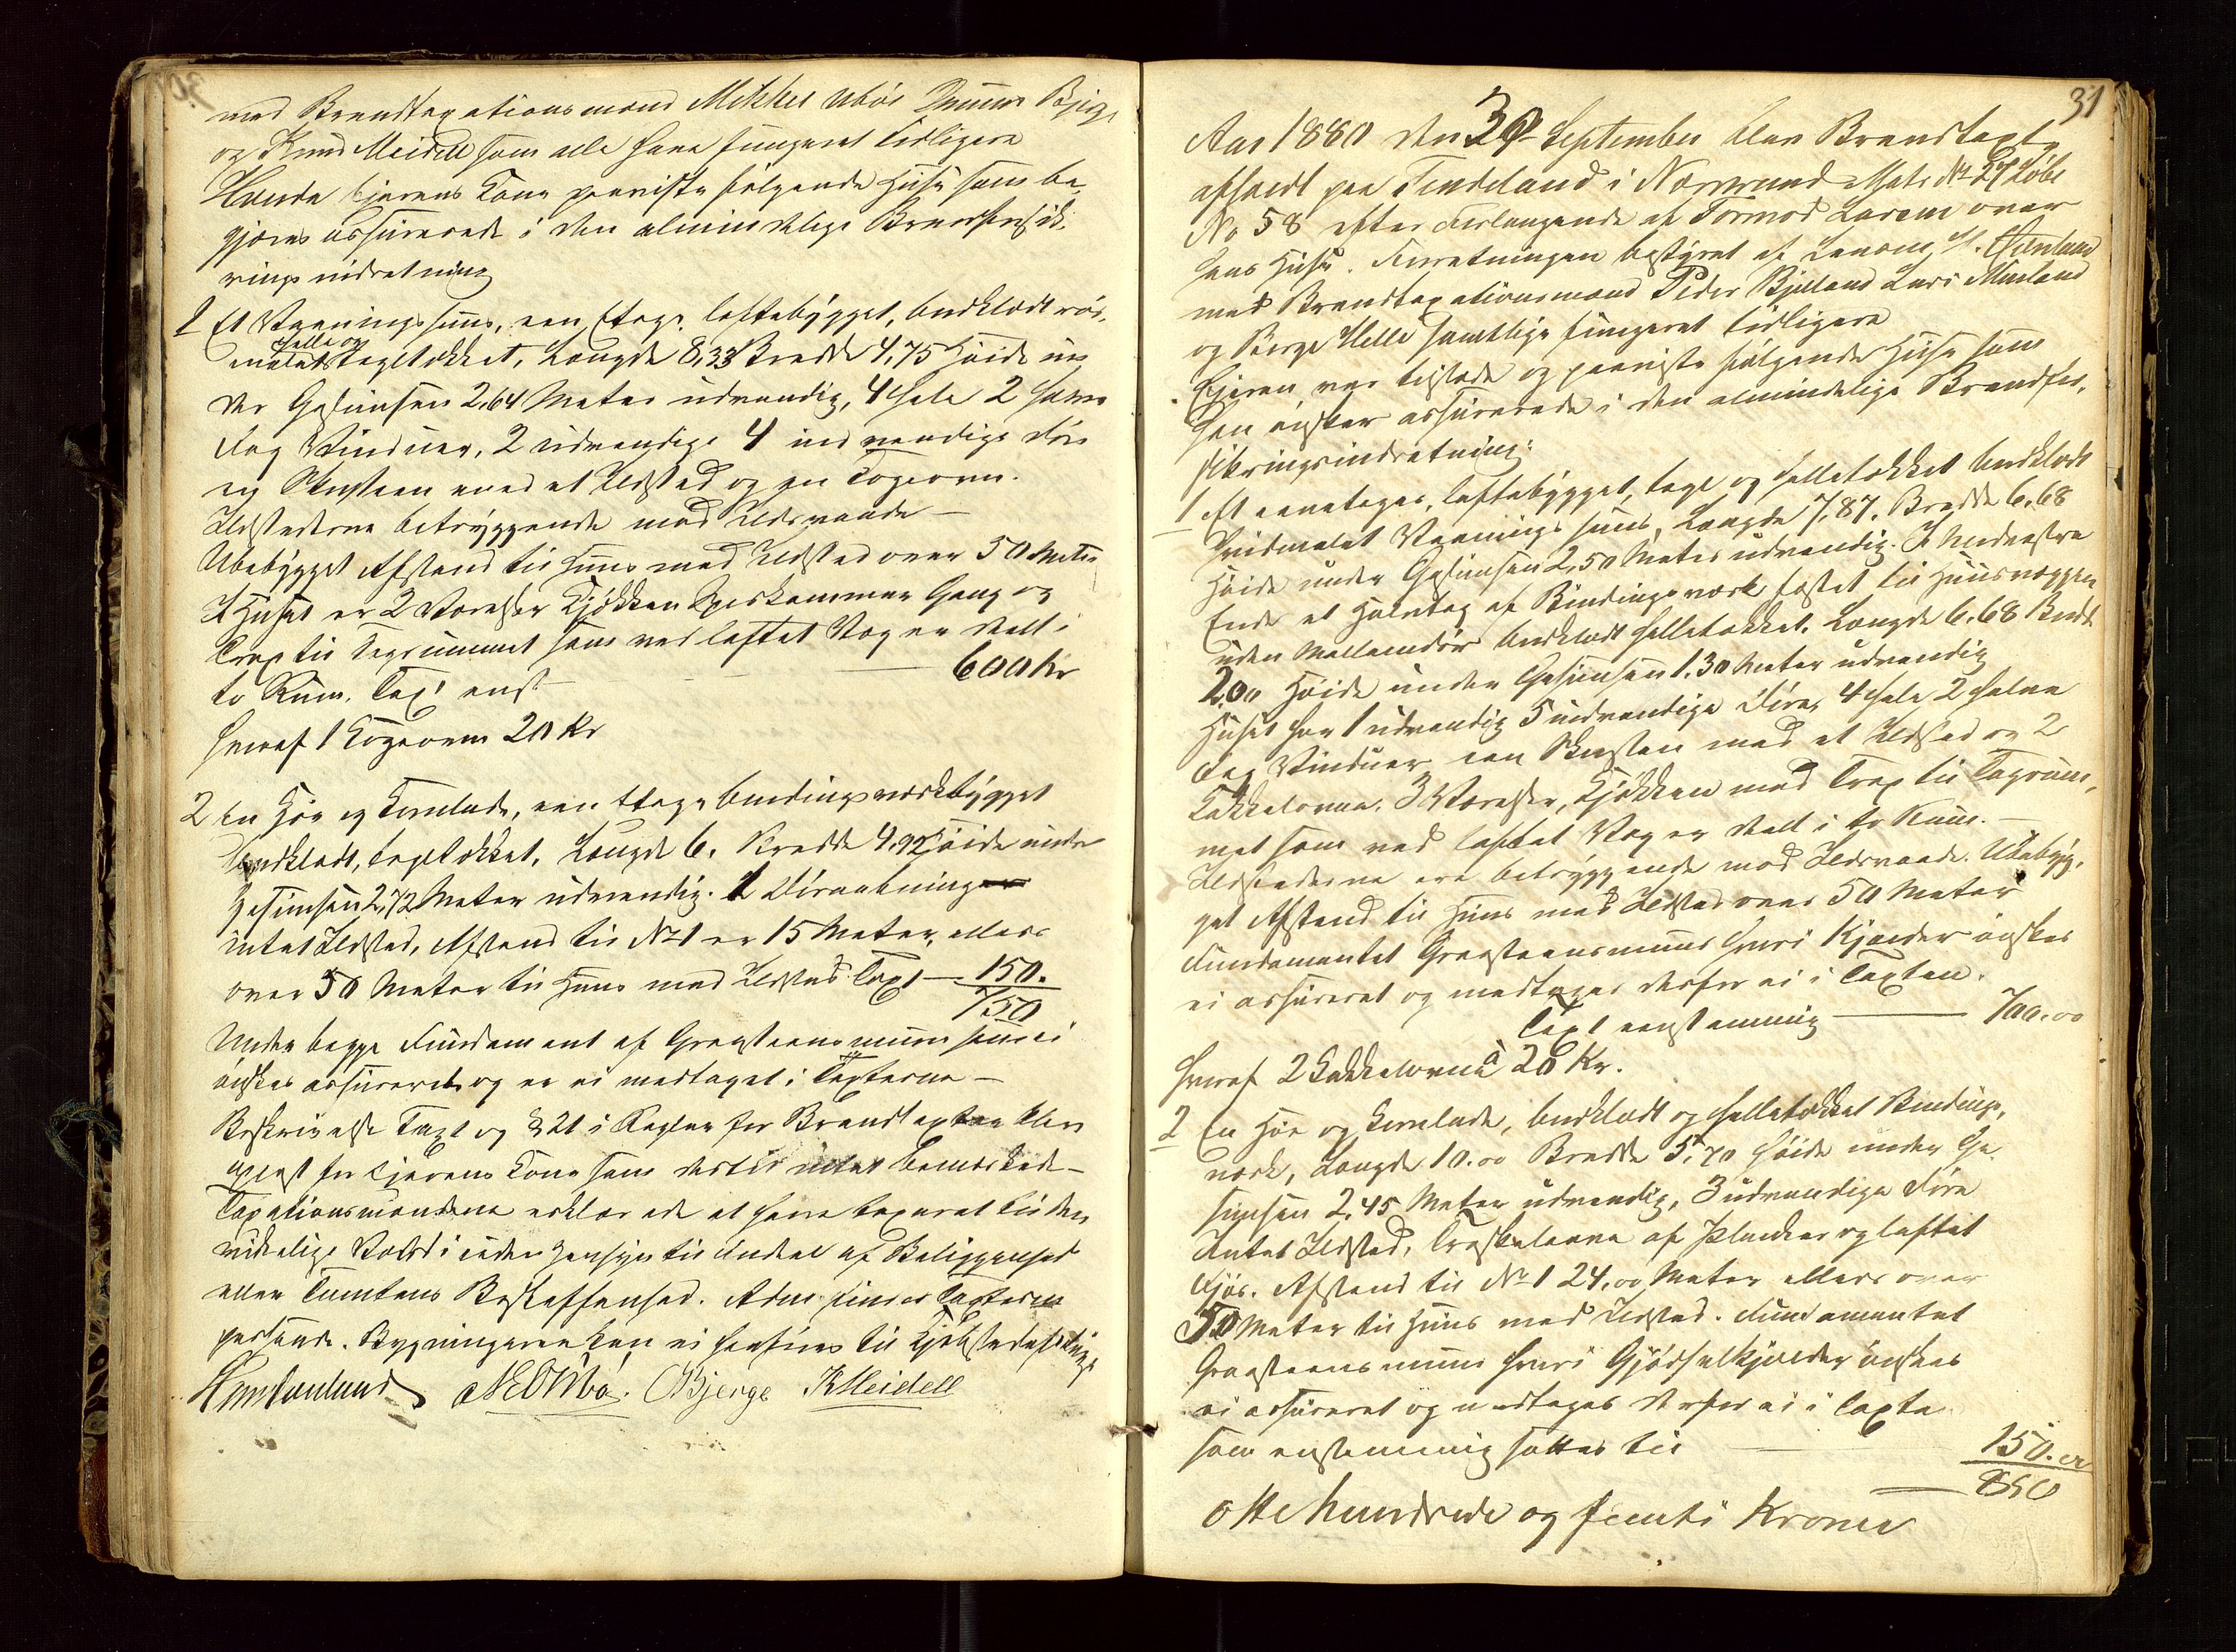 med Brandtaxationsmænd Mikkel Ubøe Bjerge
og Knud Meidell som alle have fungeret tidligere
Eierens Kone paaviste følgende Huse som be-
gjæres assurerede i den almindelige Brandforsik-
ringsindretning
1 Et Vaaningshuus, een Etage, loftebygget, bordklædt rød-
malet helle og tegltækket, Længde 8,33 Bredde 4,75 Høide un
der Gesimsen 2,64 Meter udvendig, 4 hele 2 halve
Fag Vinduer, 2 udvendige 4 indvendige Døre
en Skorsteen med et Ildsted og en Kogeovn.
Ildstederne betryggende mod Ildsvaade —
Ubebygget Afstand til Huus med Ildsted over 50 Meter
I Huset er 2 Værelser Kjøkken Spiskammer Gang og
Trap til Tagrummet som ved loftet Væg er delt i
to Rum. Taxt enst — 600 Kr
hvoraf 1 Kogeovn 20 Kr
2 En Høe og Kornlade, een Etage bindingsværkbygget
bordklædt, tagltækket, Længde 6, Bredde 4,92 Høide under
Gesimsen 2,72 Meter udvendig. 1 Døraabning
intet Ildsted, Afstand til No 1 er 15 Meter, ellers
over 50 Meter til Huus med Ildsted Taxt — 150.
750
Under begge Fundament af Graasteensmuur som ei
ønskes assureret og er ei medtaget i Taxterne —
Beskrivelse Taxt og § 21 i Reglen for Brandtaxter blev
oplæst for Eierens Kone som dertil intet bemærkede —
Taxationsmændene erklærede at have taxeret til den
virkelige Værdi uden Hensyn til Andel af Beliggenhed
eller Tomtens Beskaffenhed. Adm. finder Taxterne
passende. Bygningerne kan ei henføres til Kjøbstadsbebyggelse
OBjerge KMeidell
31
Aar 1880 den 30 September blev Brandtaxt
afholdt paa Tendeland i Nærmrund Matr No 27 Løbe
No 58 efter Forlangende af Tormod Larsen over
hans Huse. Forretningen bestyret af Lensm.
med Brandtaxationsmænd Peder Bjelland Lars Maeland
og Børge Helle samtlige fungeret tidligere
Eieren var tilstede og paaviste følgende Huse som
han ønsker assurerede i den almindelige Brandfor-
sikringsindretning:
1 Et eenetages, loftebygget, tagl og helletækket bordklædt
hvidmalet Vaaningshuus, Længde 7,87. Bredde 6,68
Høide under Gesimsen 2,50 Meter udvendig. I Nordøstre
Ende et Halvtag af Bindingsværk fæstet til Huusvæggen
uden Mellemdør bordklædt helletækket. Længde 6,68 Bredde
2,00 Høide under Gesimsen 1.30 Meter udvendig
Huset har 1 udvendig 5 indvendige Døre, 4 hele 2 halve
Fag Vinduer een Skorsten med et Ildsted og 2
Kakkelovne. 3 Værelser, Kjøkken med Trap til Tagrum-
met som ved loftet Væg er delt i to Rum. —
Ildstederne ere betryggende mod Ildsvaade. Ubebyg-
get Afstand til Huus med Ildsted over 50 Meter
Fundamentet Graasteensmuur hvori Kjælder ønskes
ei assureret og medtages derfor ei i Taxten.
Taxt eenstemmig — 700.00
hvoraf 2 Kakkelovne à 20 Kr.
2 En Høe og Kornlade, bordklædt og helletækket Bindings-
værk, Længde 10.00 Bredde 5,70 Høide under Ge-
simsen 2,45 Meter udvendig, 3 udvendige Døre
Intet Ildsted, Treskeloven af Planker og loftet
Fjøs. Afstand til No 1 24,00 Meter ellers over
50 Meter til Huus med Ildsted. Fundamentet
Graasteensmuur hvori Gjødselkjælder ønskes
ei assureret og medtages derfor ei i Taxten
som enstemmig sattes til — 150.00
— 850
otte hundrede og femti Kroner